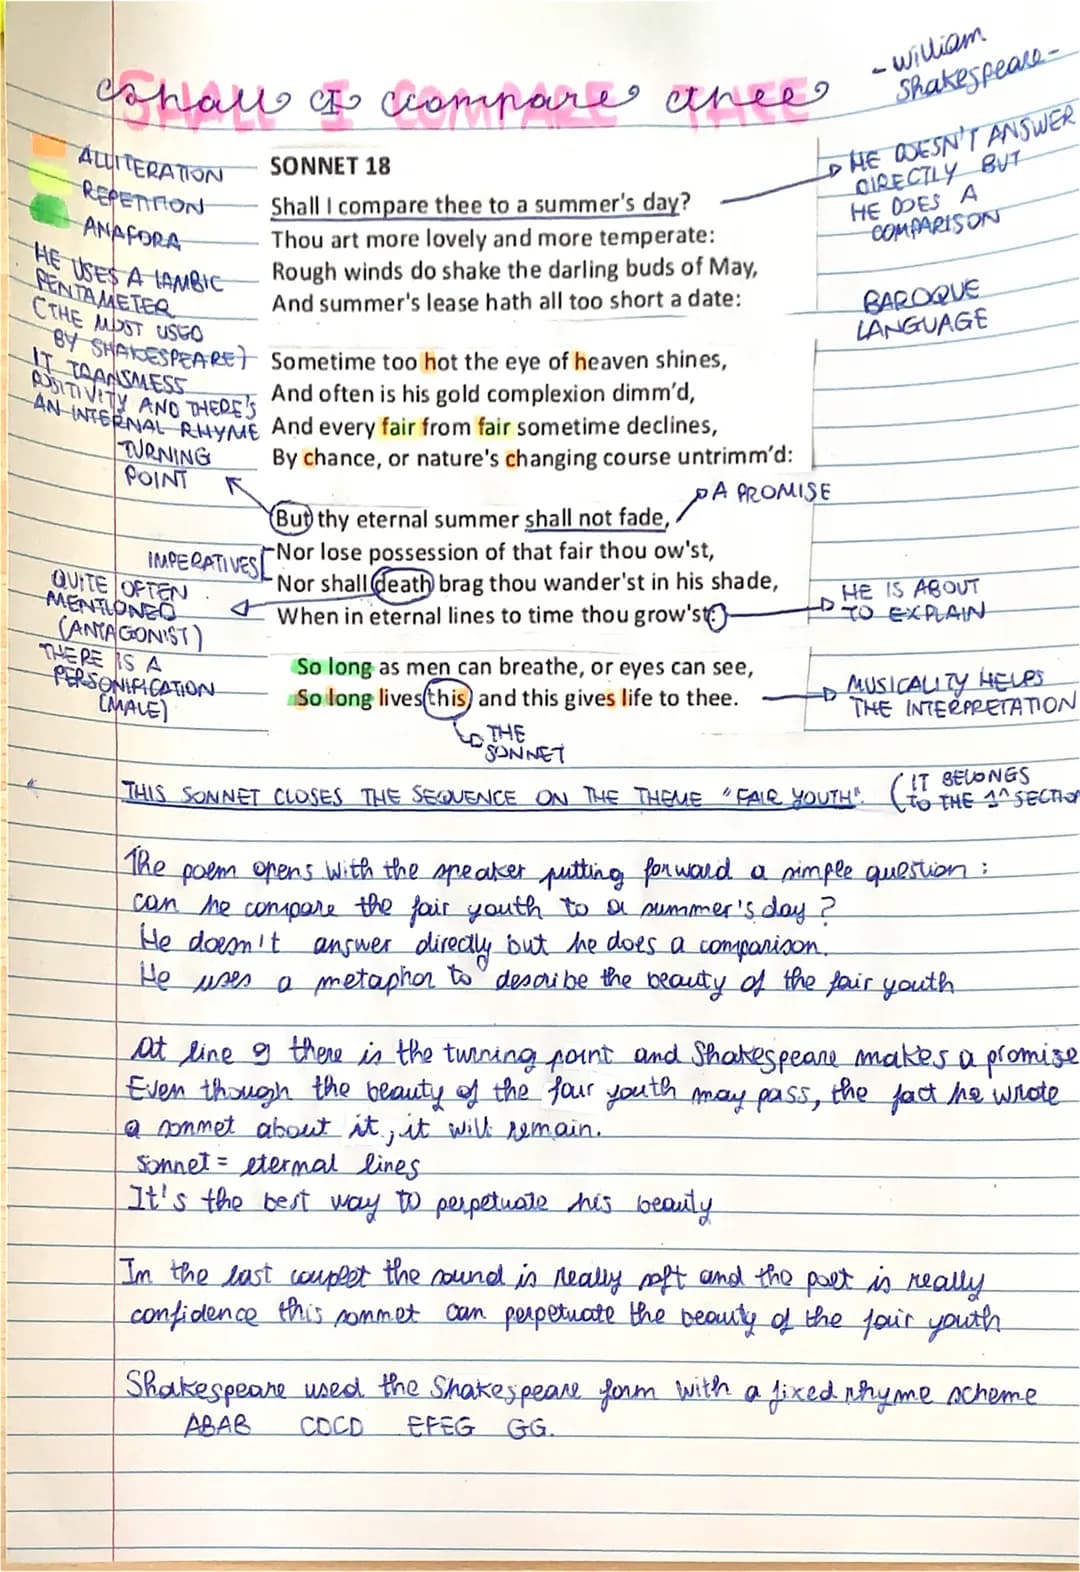 Shall I compare thee
SHALL I COMPARE THEE
- William
Shakespeare -
ALLITERATION
REPETITION
ANAFORA
HE USES A IAMBIC
PENTAMETER
(THE MOST USED
BY SHAKESPEARE)
IT TRANSMESS
POSITIVITY AND THERE'S
AN INTERNAL RHYME
TURNING
POINT
IMPERATIVES
QUITE OFTEN
MENTIONED
(ANTAGONIST)
THERE IS A
PERSONIFICATION
(MALE)
SONNET 18
Shall I compare thee to a summer's day?
Thou art more lovely and more temperate:
Rough winds do shake the darling buds of May,
And summer's lease hath all too short a date:
Sometime too hot the eye of heaven shines,
And often is his gold complexion dimm'd,
And every fair from fair sometime declines,
By chance, or nature's changing course untrimm'd:
But thy eternal summer shall not fade,
Nor lose possession of that fair thou ow'st,
Nor shall death brag thou wander'st in his shade,
When in eternal lines to time thou grow'st:
So long as men can breathe, or eyes can see,
So long lives this, and this gives life to thee.
HE DOESN'T ANSWER
DIRECTLY BUT
HE DOES A
COMPARISON
BAROQUE
LANGUAGE
A PROMISE
HE IS ABOUT
TO EXPLAIN
MUSICALITY HELPS
THE INTERPRETATION
THE
SONNET
THIS SONNET CLOSES THE SEQUENCE ON THE THEME "FAIR YOUTH". (IT BELONGS
TO THE 1^ SECTION
The poem opens with the speaker putting forward a simple question :
can he compare the fair youth to a summer's day ?
He doesn't answer directly but he does a comparison.
He uses a metaphor to describe the beauty of the fair youth
At line 9 there is the turning point and Shakespeare makes a promise
Even though the beauty of the fair youth may pass, the fact he wrote
a sonnet about it, it will remain.
Sonnet = eternal lines
It's the best way to perpetuate his beauty
In the last couplet the sound is really soft and the poet is really
confidence this sonnet can perpetuate the beauty of the fair youth
Shakespeare used the Shakespeare form with a fixed rhyme scheme
ABAB CDCD EFEG GG.